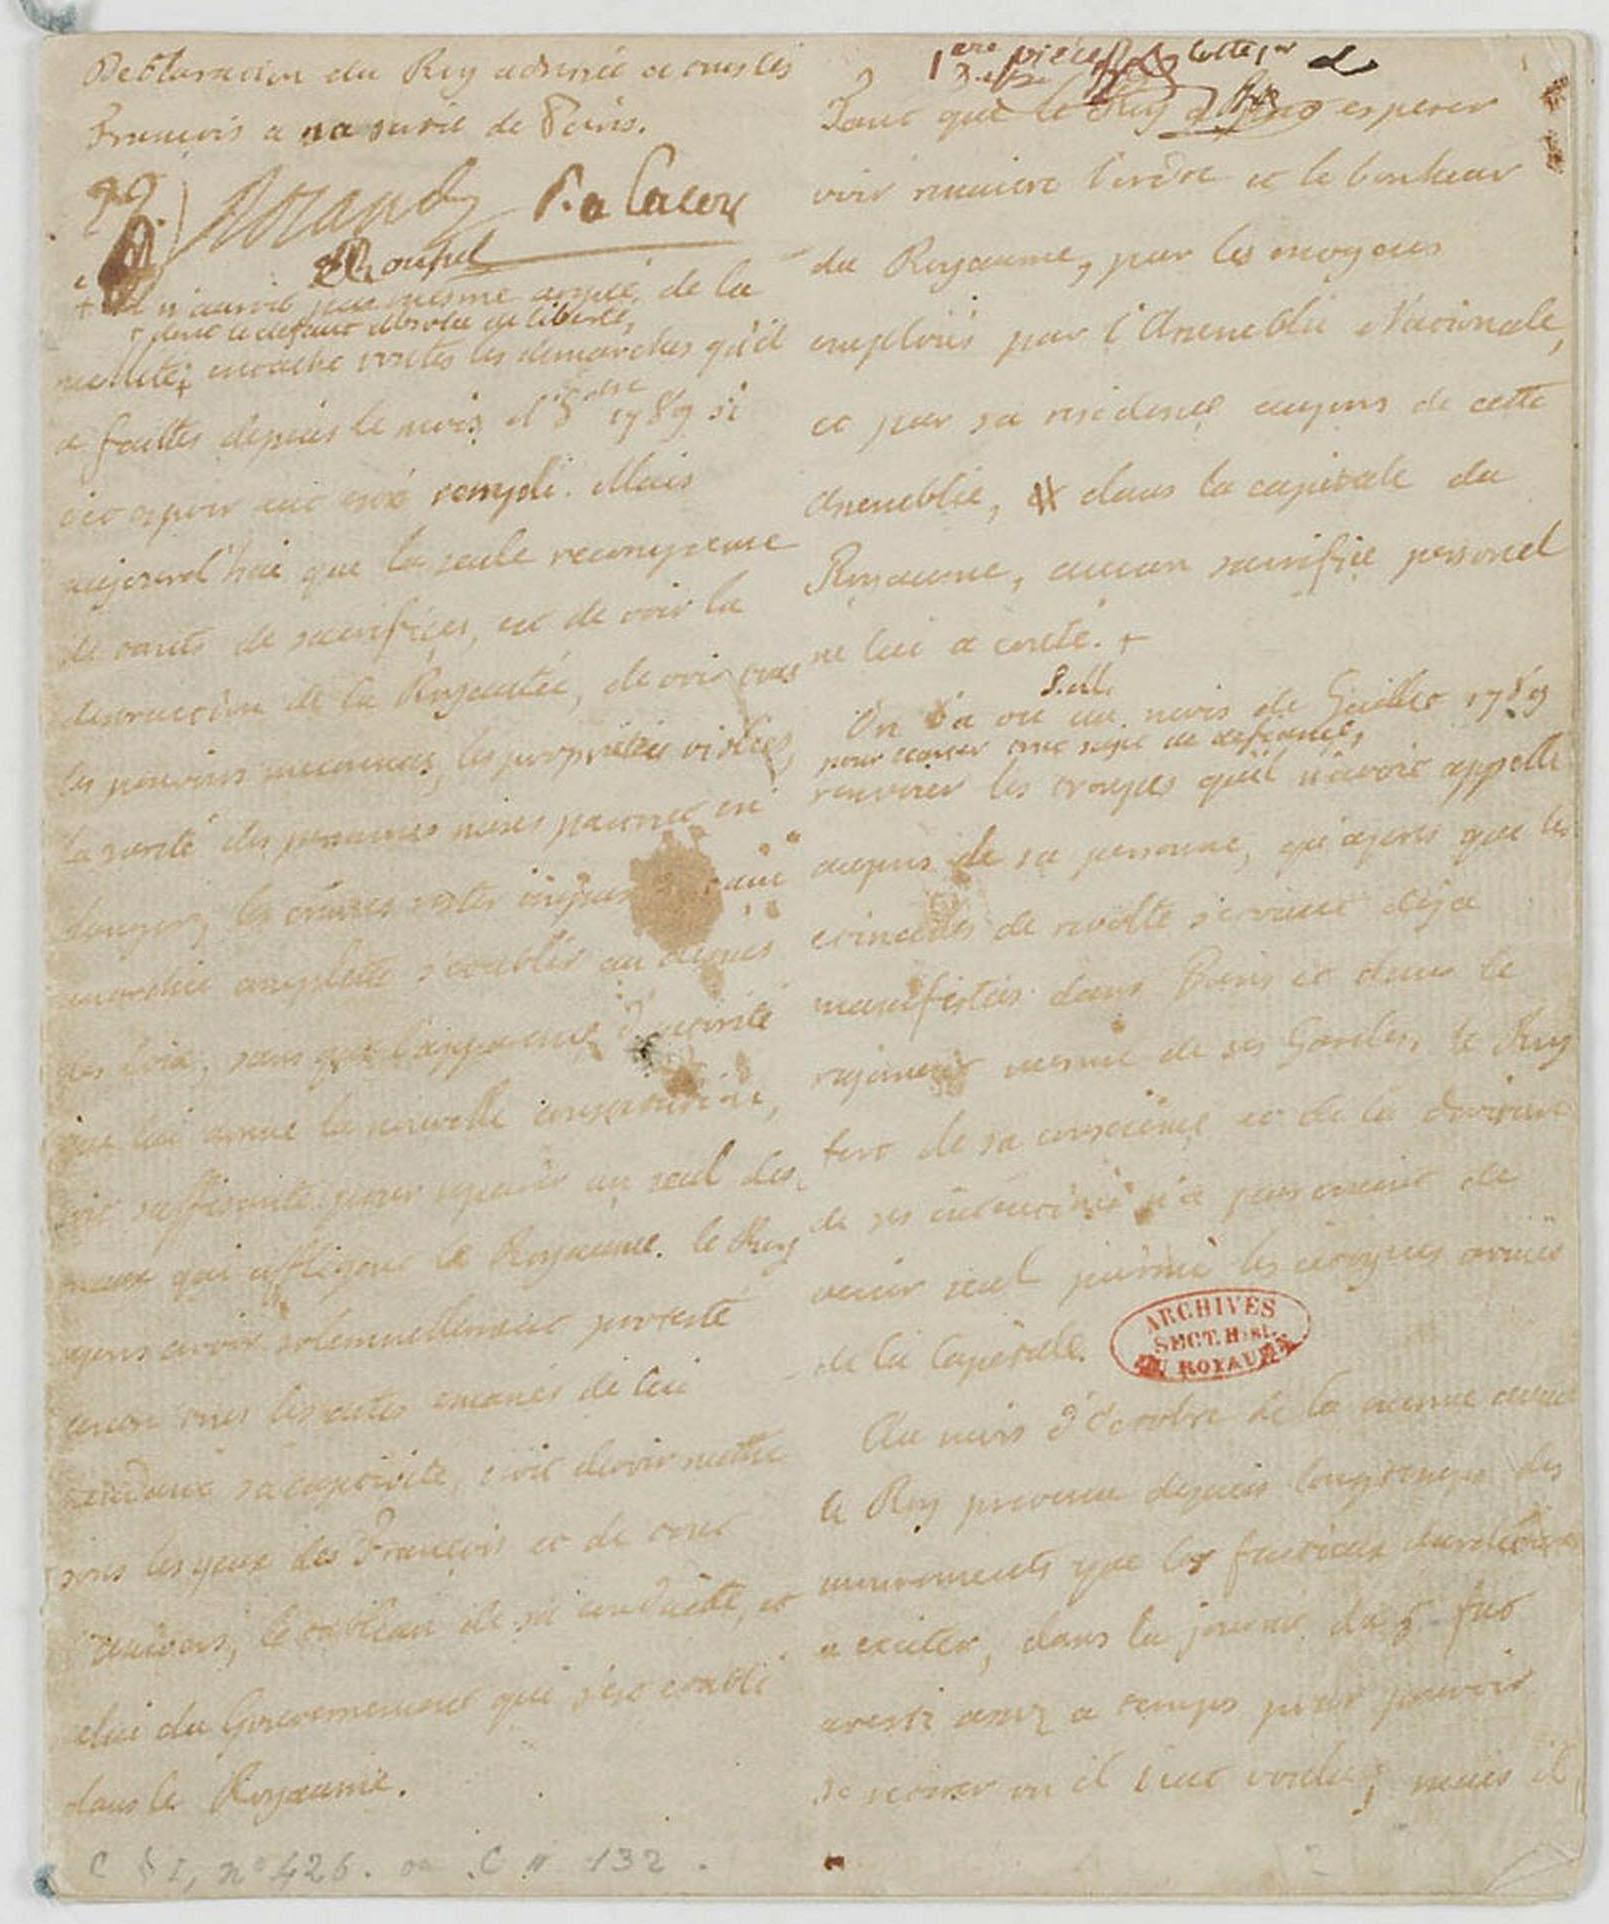 Declaration du Roy adressée a tous les
François a sa sortie de Paris.
1ere piece cotte per
P. a Lacour
Tant que le Roy a pu esperer
voir renaitre l'ordre et le bonheur
du Royaume, par les moyens
employés par l'Assemblée Nationale,
et par sa residence aupres de cette
Assemblée, dans la capitale du
Royaume, aucun sacrifice personel
ne lui a couté. +
+ il n'auroit pas mesme argué, de la
nullité,
+ dont le defaut absolu de liberté,
entache toutes les demarches qu'il
a faittes depuis le mois d'8bre 1789 si
cet espoir eut eté rempli. Mais
aujourd'hui que la seule recompense
de tants de sacrifices, est de voir la
destruction de la Royautée, de voir tous
les pouvoirs meconnus, les propriétés violées,
la sureté des personnes mises partout en
danger, les crimes rester impunis
anarchie complette s'etablir au dessus
des loix, sans que l'apparence d'autorité
que lui donne la nouvelle constitution,
soit suffisante pour reparer un seul des
maux qui affligent le Royaume. le Roy
apres avoir solemnellement protesté
contre tous les actes emanés de lui
pendant sa captivité, croit devoir mettre
sous les yeux des François et de tout
l'univers, le tableau de sa conduitte, et
celui du Gouvernement qui s'est etabli
dans le Royaume.
On l'a vu au mois de Juillet 1789
pour ecarter tout sujet de defiance,
renvoier les troupes qu'il n'avoit appellé
aupres de sa personne, qu'apres que les
etincelles de revolte s'etoient deja
manifestées dans Paris et dans le
regiment mesme de ses Gardes, le Roy
fort de sa conscience et de la droiture
de ses intentions n'a pas craint de
venir seul parmi les citoyens armés
de la Capitale.
ARCHIVES
SECT. HIST.
DU ROYAUME
Au mois d'Octobre de la mesme année
le Roy prevenu depuis longtemps des
mouvements que les factieux
a exciter, dans la journée du 5 fut
averti assez a temps pour pouvoir
se retirer ou il eut voulu; mais il
C § I, n° 426. ou C II 132.